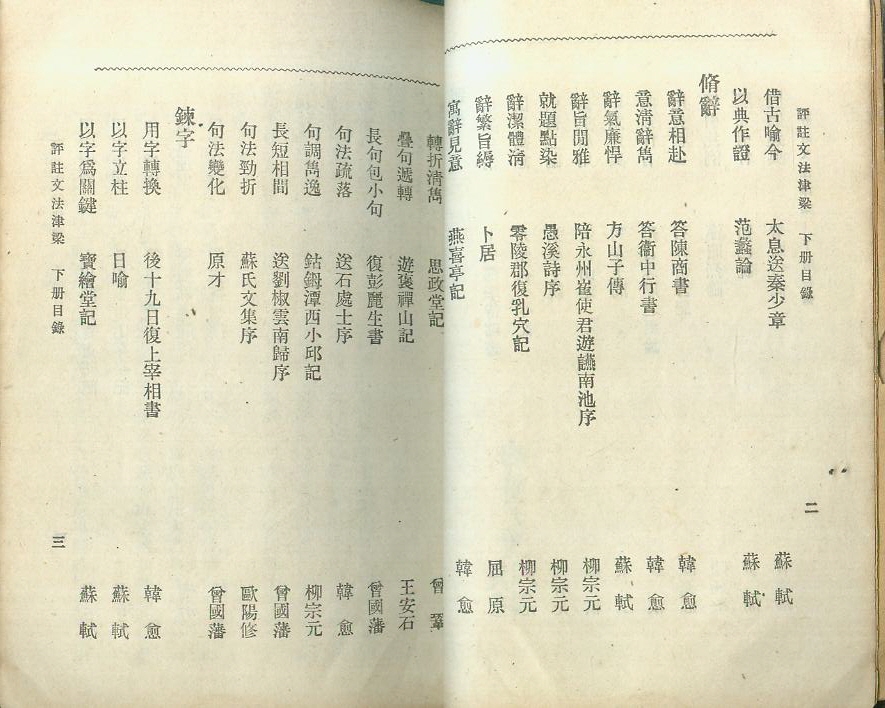 評註文法津梁 下册目錄 二
借古喻今 太息送秦少章 蘇軾
以典作證 范蠡論 蘇軾
脩辭
辭意相赴 答陳商書 韓愈
意清辭雋 答衞中行書 韓愈
辭氣廉悍 方山子傳 蘇軾
辭旨閒雅 陪永州崔使君遊讌南池序 柳宗元
就題點染 愚溪詩序 柳宗元
辭潔體凊 零陵郡復乳穴記 柳宗元
辭繁旨縟 卜居 屈原
寓辭見意 燕喜亭記 韓愈
轉折清雋 思政堂記 曾鞏
疊句遞轉 遊褒禪山記 王安石
長句包小句 復彭麗生書 曾國藩
句法疏落 送石處士序 韓愈
句調雋逸 鈷鉧潭西小邱記 柳宗元
長短相間 送劉椒雲南歸序 曾國藩
句法勁折 蘇氏文集序 歐陽修
句法變化 原才 曾國藩
鍊字
用字轉換 後十九日復上宰相書 韓愈
以字立柱 日喻 蘇軾
以字爲關鍵 寶繪堂記 蘇軾
評註文法津梁 下册目錄 三